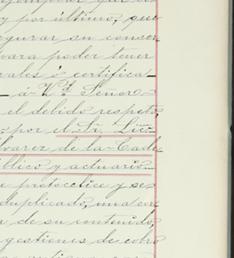 y por último, que
gurar su conser
para poder tener
rales o certifica
a V. E. Señor
el debido respeto
por el Sr. Lic.
lvarez de la Cade
blico y actuario
e protocolice y se
duplicado, una co
r de su contenido,
gestiones de cobro